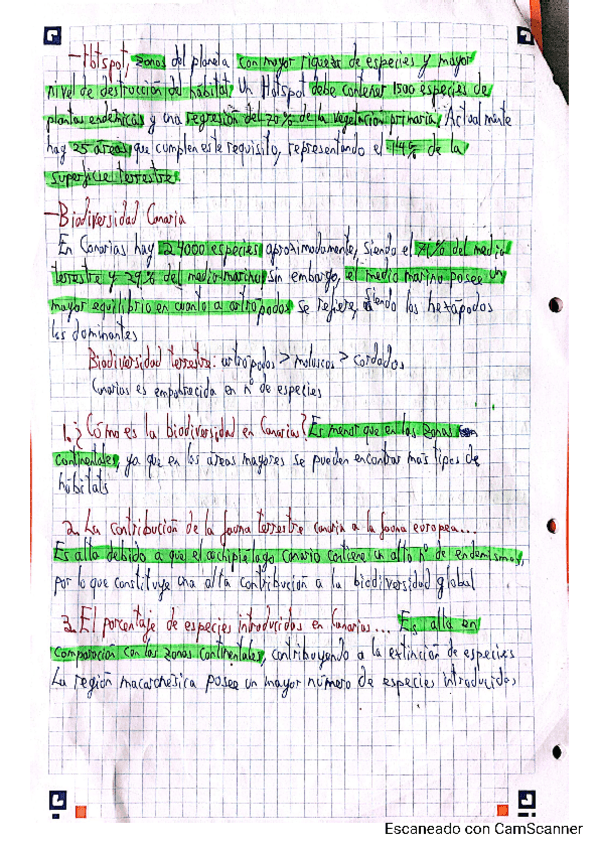 -Hotspot, zonas del planeta con mayor riqueza de especies y mayor
nivel de destrucción del hábitat. Un Hotspot debe contener 1500 especies de
plantas endémicas y una regresión del 70% de la vegetación primaria. Actualmente
hay 25 áreas que cumplen este requisito, representando el 1'4% de la
superficie terrestre.
-Biodiversidad Canaria
En Canarias hay 24000 especies aproximadamente, siendo el 71% del medio
terrestre y 29% del medio marino, sin embargo, el medio marino posee un
mayor equilibrio en cuanto a artrópodos se refiere, siendo los hexápodos
los dominantes
Biodiversidad terrestre: artrópodos > moluscos > cordados
Canarias es empobrecida en nº de especies
1. ¿Cómo es la biodiversidad en Canarias? Es menor que en las zonas
continentales, ya que en las áreas mayores se pueden encontrar más tipos de
hábitats
2. La contribución de la fauna terrestre canaria a la fauna europea...
Es alta debido a que el archipiélago canario contiene un alto nº de endemismos,
por lo que constituye una alta contribución a la biodiversidad global
3. El porcentaje de especies introducidas en Canarias... Es alta en
comparación con las zonas continentales, contribuyendo a la extinción de especies
La región macaronésica posee un mayor número de especies introducidas
Escaneado con CamScanner